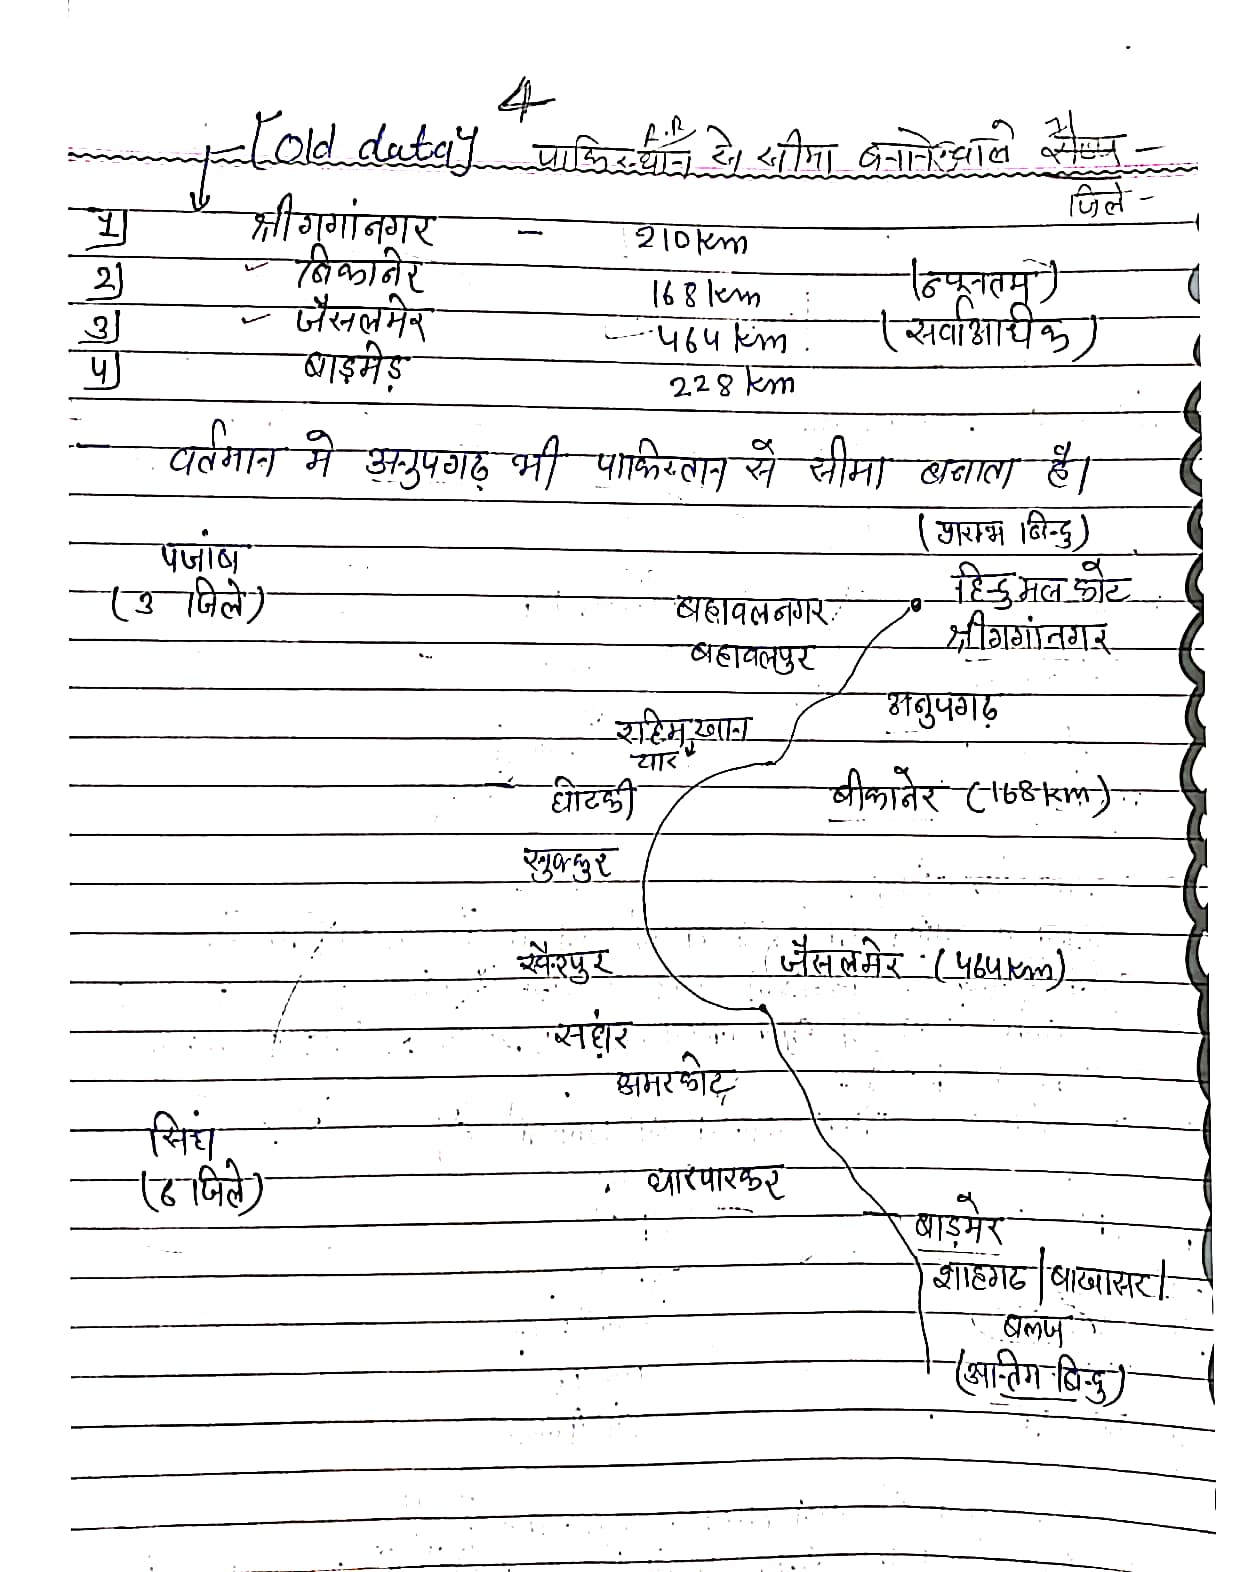 4
[old data] पाकिस्थान से सीमा बनानेवाले
जिले -
1] श्रीगगांनगर - 210 km
2] बिकानेर 168 km (न्यूनतम)
3] जैसलमेर 464 km (सर्वाआधीक)
4] बाड़मेड़ 228 km
- वर्तमान मे अनुपगढ़ भी पाकिस्तान से सीमा बनाता है।
(प्रारम्भ बिन्दु)
पंजाब
(3 जिले)
हिन्दुमल कोट
बहावलनगर
श्रीगगांनगर
बहावलपुर
अनुपगढ़
रहिम खान
यार
घोटकी बीकानेर (168 km)
सुक्कुर
खैरपुर जैसलमेर (464 km)
संघर
अमरकोट
सिंध
(6 जिले)
थारपारकर
बाड़मेर
शाहगढ | बाखासर |
(अन्तिम बिन्दु)